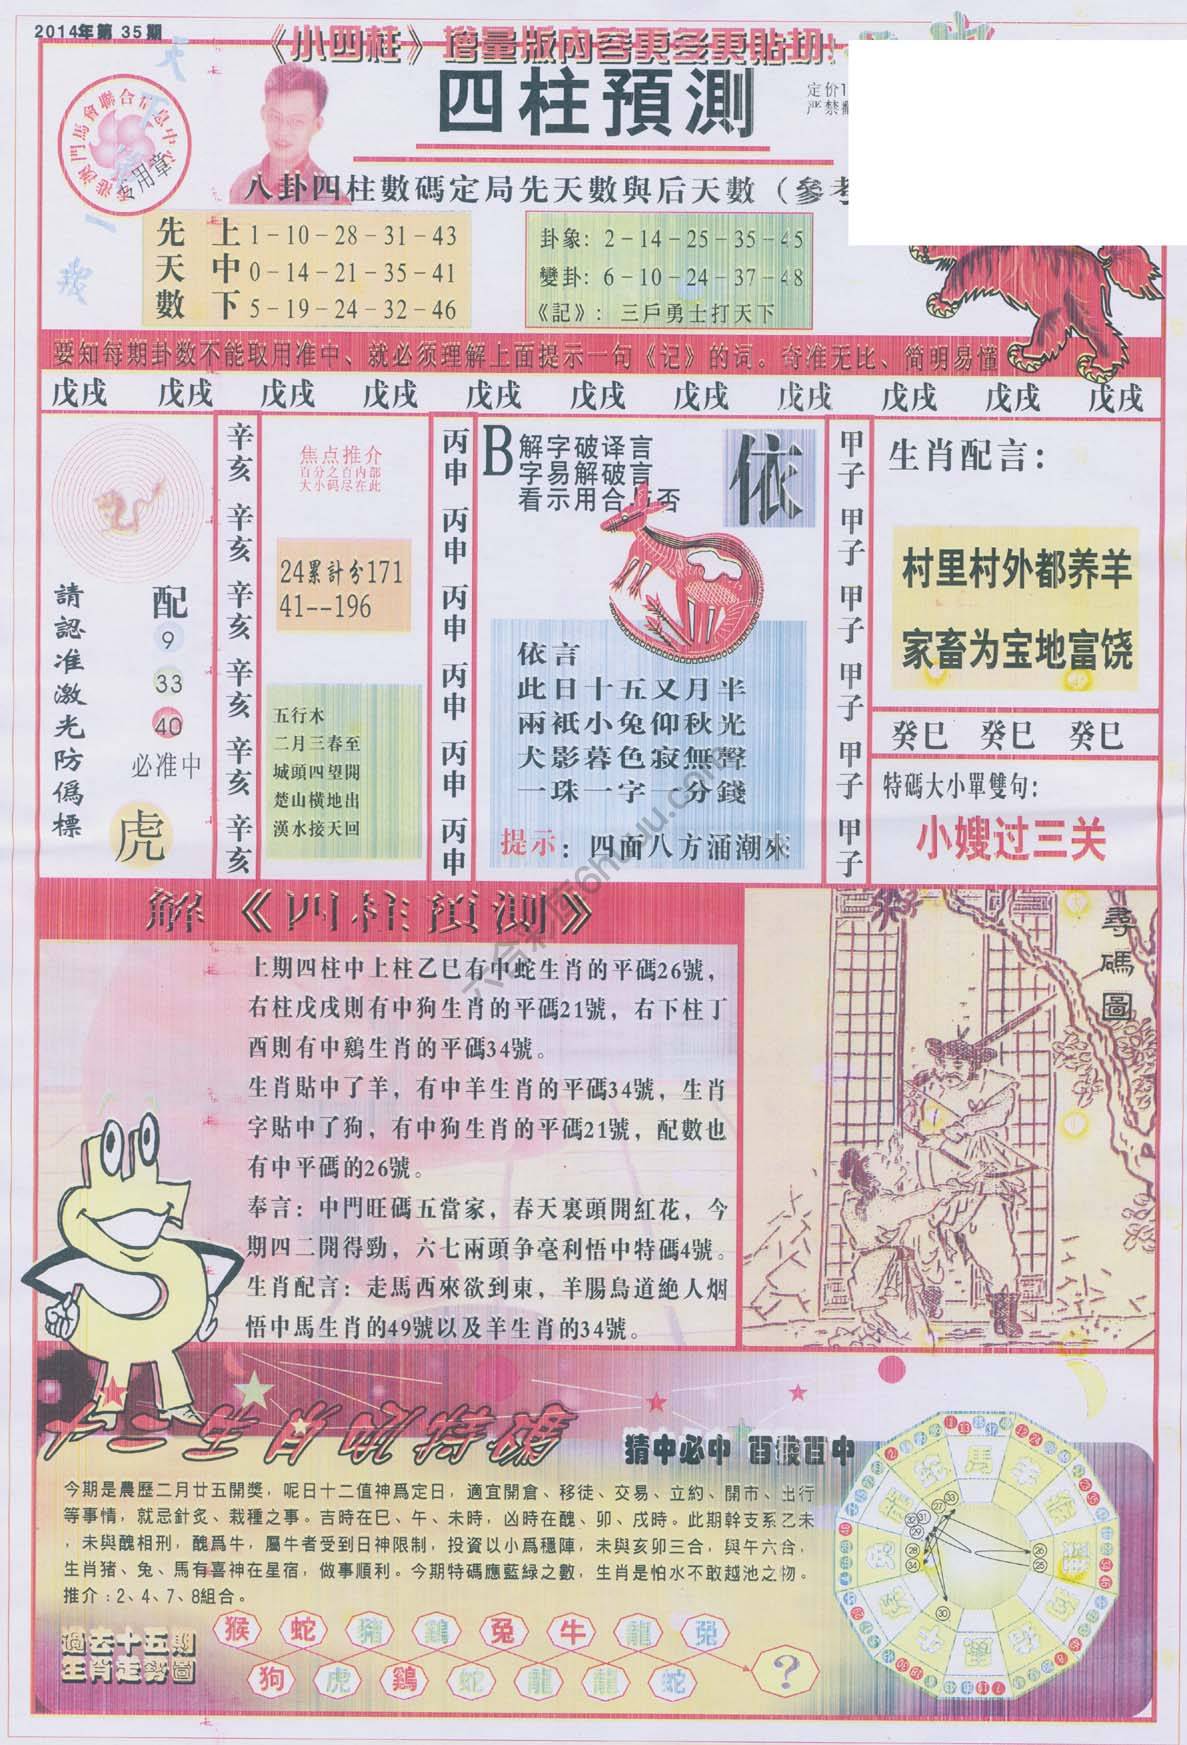 2014年第 35 期
《小四柱》增量版内容更多更貼切!
四柱預測
定价1
严禁
八卦四柱數碼定局先天數與后天數（參考
先天數
上 1－10－28－31－43
中 0－14－21－35－41
下 5－19－24－32－46
卦象: 2－14－25－35－45
變卦: 6－10－24－37－48
《記》: 三戶勇士打天下
要知每期卦数不能取用准中、就必须理解上面提示一句《记》的词。奇准无比、简明易懂
戊戌 戊戌 戊戌 戊戌 戊戌 戊戌 戊戌 戊戌 戊戌 戊戌 戊戌
請認准激光防僞標
配
9
33
40
必准中
虎
辛亥 辛亥 辛亥 辛亥 辛亥 辛亥
焦点推介
百分之百内部
大小码尽在此
24累計分171
41--196
五行木
二月三春至
城頭四望開
楚山橫地出
漢水接天回
丙申 丙申 丙申 丙申 丙申 丙申
B
解字破译言
字易解破言
看示用合与否
依
依言
此日十五又月半
兩衹小兔仰秋光
犬影暮色寂無聲
一珠一字一分錢
提示: 四面八方涌潮來
甲子 甲子 甲子 甲子 甲子 甲子
生肖配言:
村里村外都养羊
家畜为宝地富饶
癸巳 癸巳 癸巳
特碼大小單雙句:
小嫂过三关
解《四柱預測》
上期四柱中上柱乙巳有中蛇生肖的平碼26號，
右柱戊戌則有中狗生肖的平碼21號，右下柱丁
酉則有中鷄生肖的平碼34號。
生肖貼中了羊，有中羊生肖的平碼34號，生肖
字貼中了狗，有中狗生肖的平碼21號，配數也
有中平碼的26號。
奉言：中門旺碼五當家，春天裏頭開紅花，今
期四二開得勁，六七兩頭争毫利悟中特碼4號。
生肖配言：走馬西來欲到東，羊腸鳥道絶人烟
悟中馬生肖的49號以及羊生肖的34號。
尋碼圖
猜中必中 百發百中
今期是農歷二月廿五開獎，呢日十二值神爲定日，適宜開倉、移徒、交易、立約、開市、出行
等事情，就忌針炙、栽種之事。吉時在巳、午、未時，凶時在醜、卯、戌時。此期幹支系乙未
，未與醜相刑，醜爲牛，屬牛者受到日神限制，投資以小爲穩陣，未與亥卯三合，與午六合，
生肖猪、兔、馬有喜神在星宿，做事順利。今期特碼應藍緑之數，生肖是怕水不敢越池之物。
推介：2、4、7、8組合。
過去十五期
生肖走勢圖
猴 蛇 猪 鷄 兔 牛 龍 兔
狗 虎 鷄 蛇 龍 龍 蛇 ?